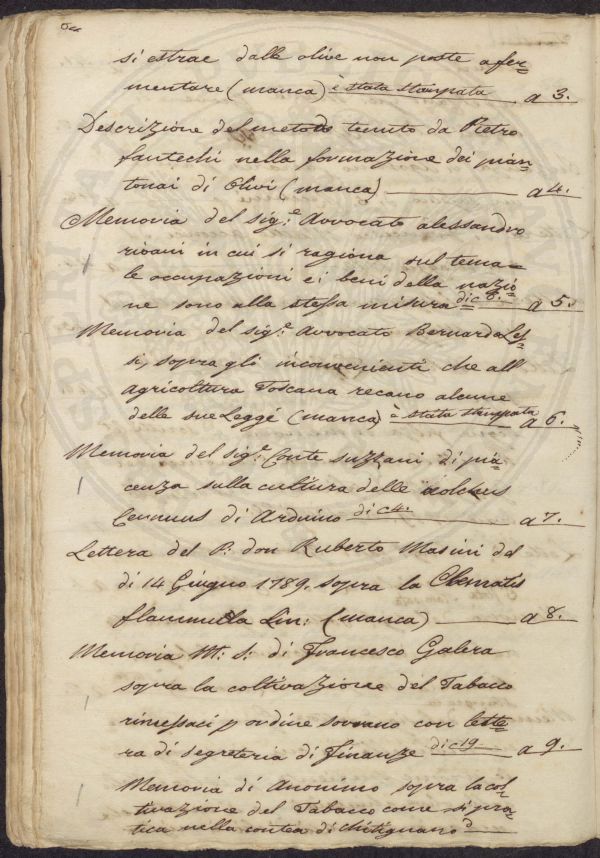 si estrae dalle olive non poste a fer=
mentare (manca) è stata stampata a 3.
Descrizione del metodo tenuto da Pietro
fantechi nella formazione dei pian=
tonai di Olivi (manca) a 4.
Memoria del sig.e Avvocato alessandro
rivani in cui si ragiona sul tema=
le occupazioni e i beni della nazio=
ne sono alla stessa misura di c 8. a 5.
Memoria del sig.e Avvocato Bernardo Les=
si, sopra gli inconvenienti che all'
agricoltura Toscana recano alcune
delle sue Leggi (manca) è stata stampata a 6.
Memoria del sig.e Conte suzzani di pia=
cenza sulla cultura delle
di Arduino di c 4. a 7.
Lettera del P: don Ruberto Masini del
di 14 Giugno 1789. sopra la Clematis
flammula Lin: (manca) a 8.
Memoria M: S: di Francesco Galera
sopra la coltivazione del Tabacco
rimessaci p ordine sovrano con lette=
ra di segreteria di Finanze di c 19 a 9.
Memoria di Anonimo sopra la col=
tivazione del Tabacco come si pra=
tica nella contea di chitignano